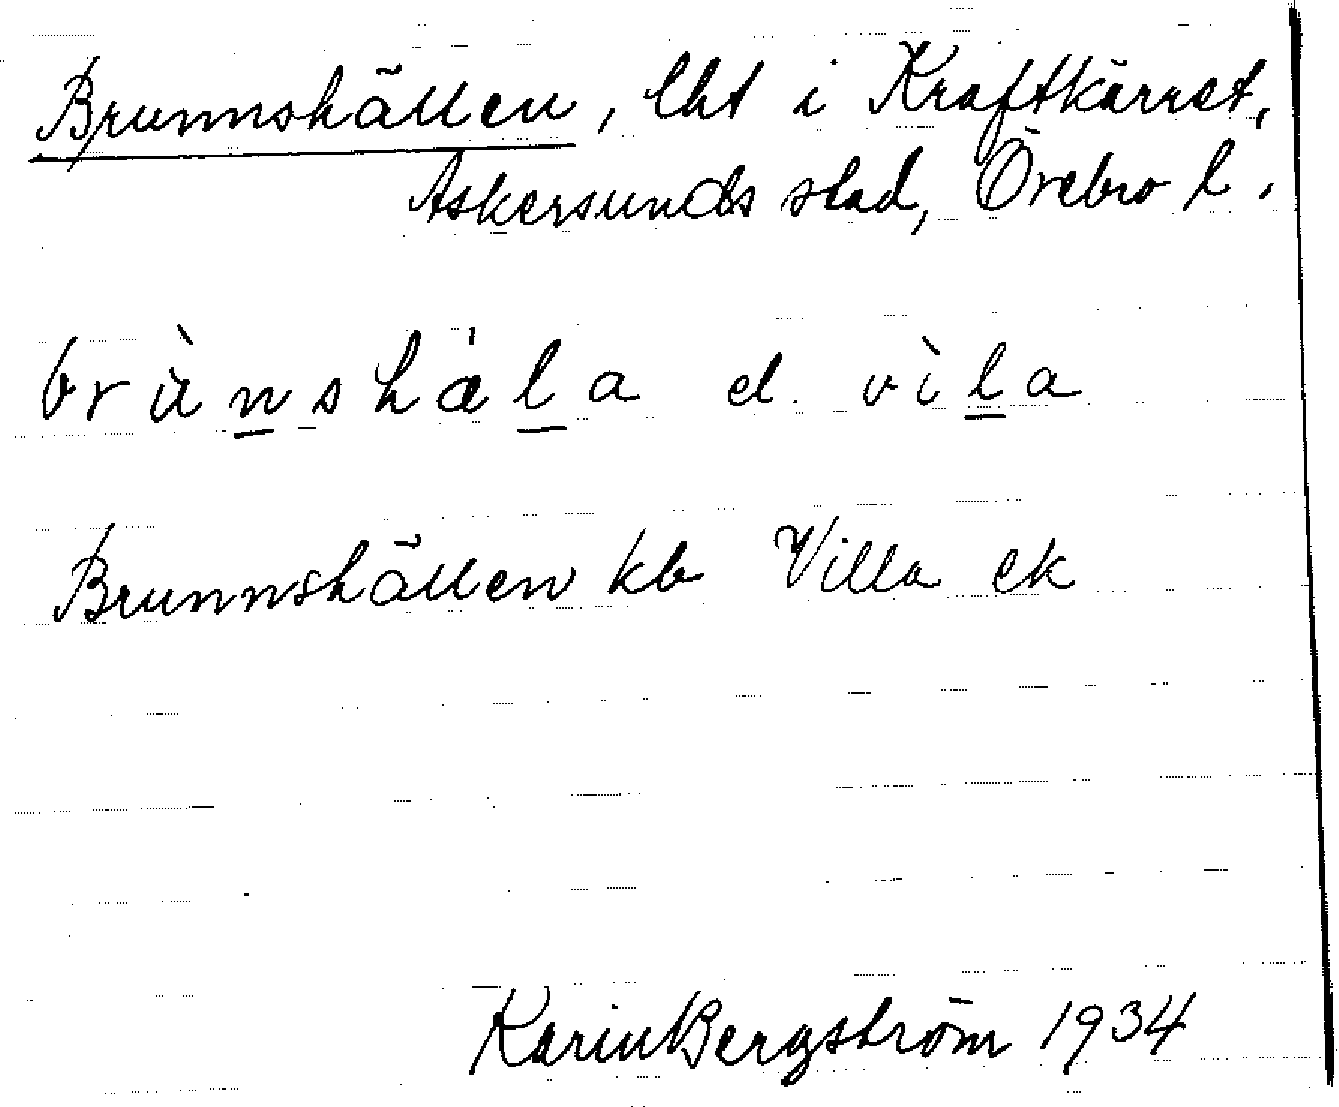 Brunnshällen, lht i Kraftkärret,
Askersunds stad, Örebro l.
brùnshä́la el. vìla
Brunnshällen kb Villa ek
Karin Bergström 1934